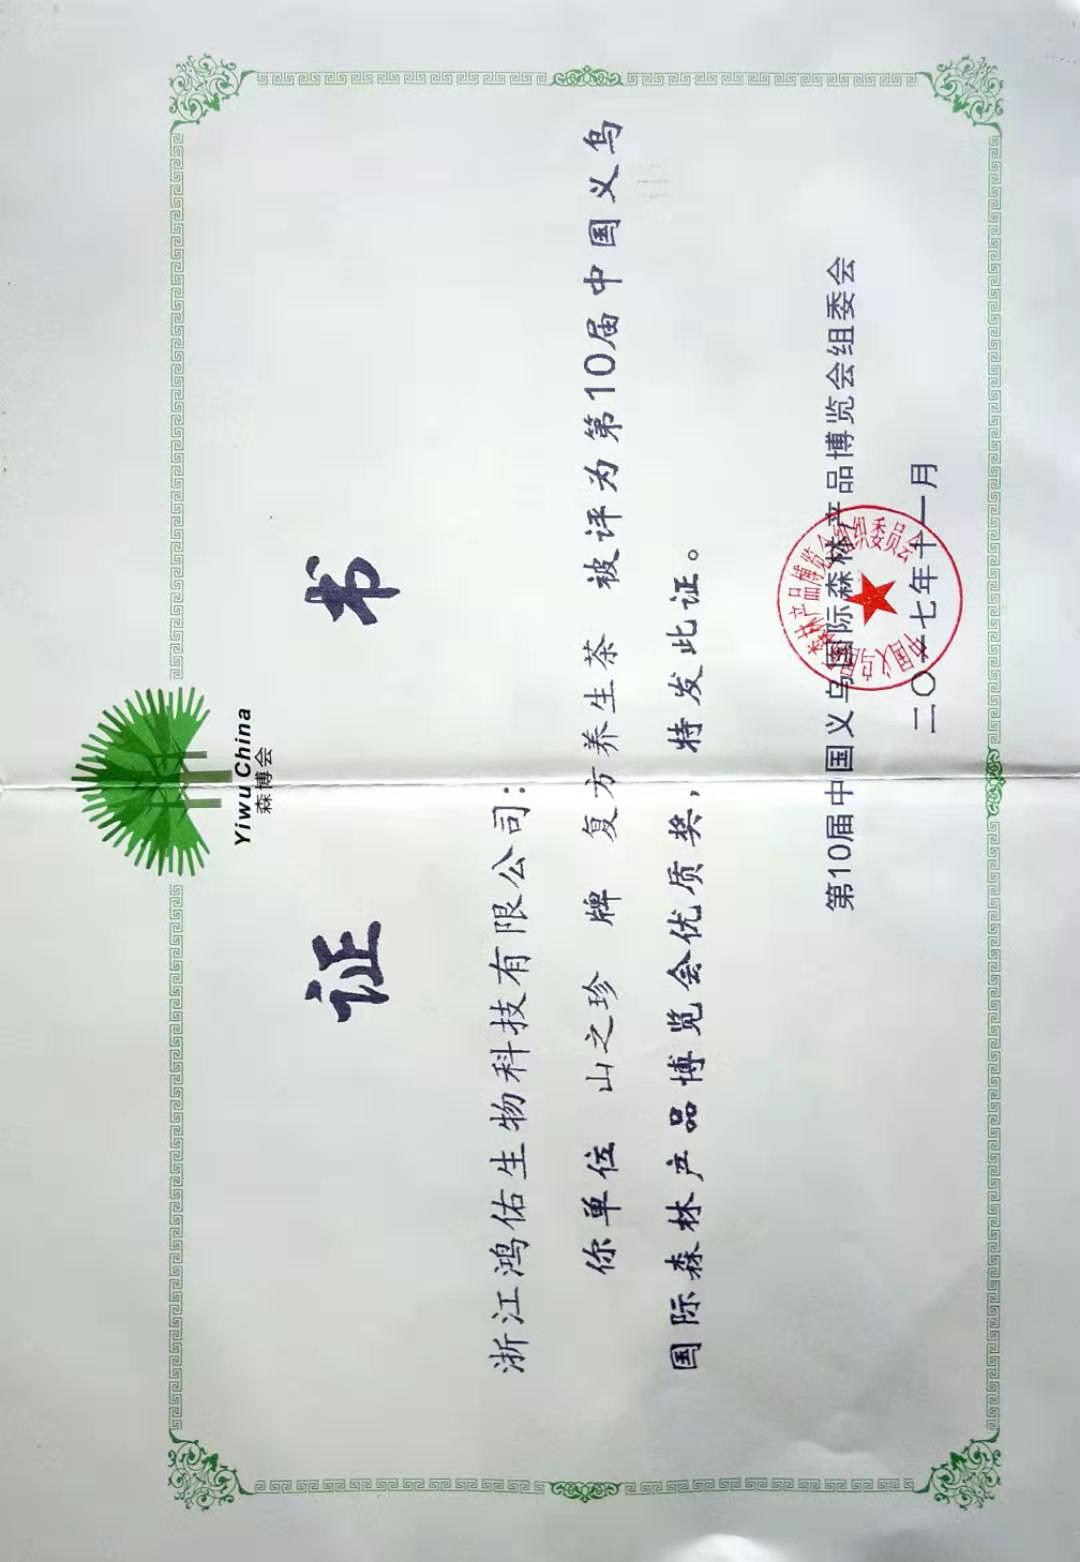 Yiwu China
森博会
证书
浙江鸿佑生物科技有限公司：
你单位 山之珍 牌 复方养生茶 被评为第10届中国义乌
国际森林产品博览会优质奖，特发此证。
第10届中国义乌国际森林产品博览会组委会
二〇一七年十一月